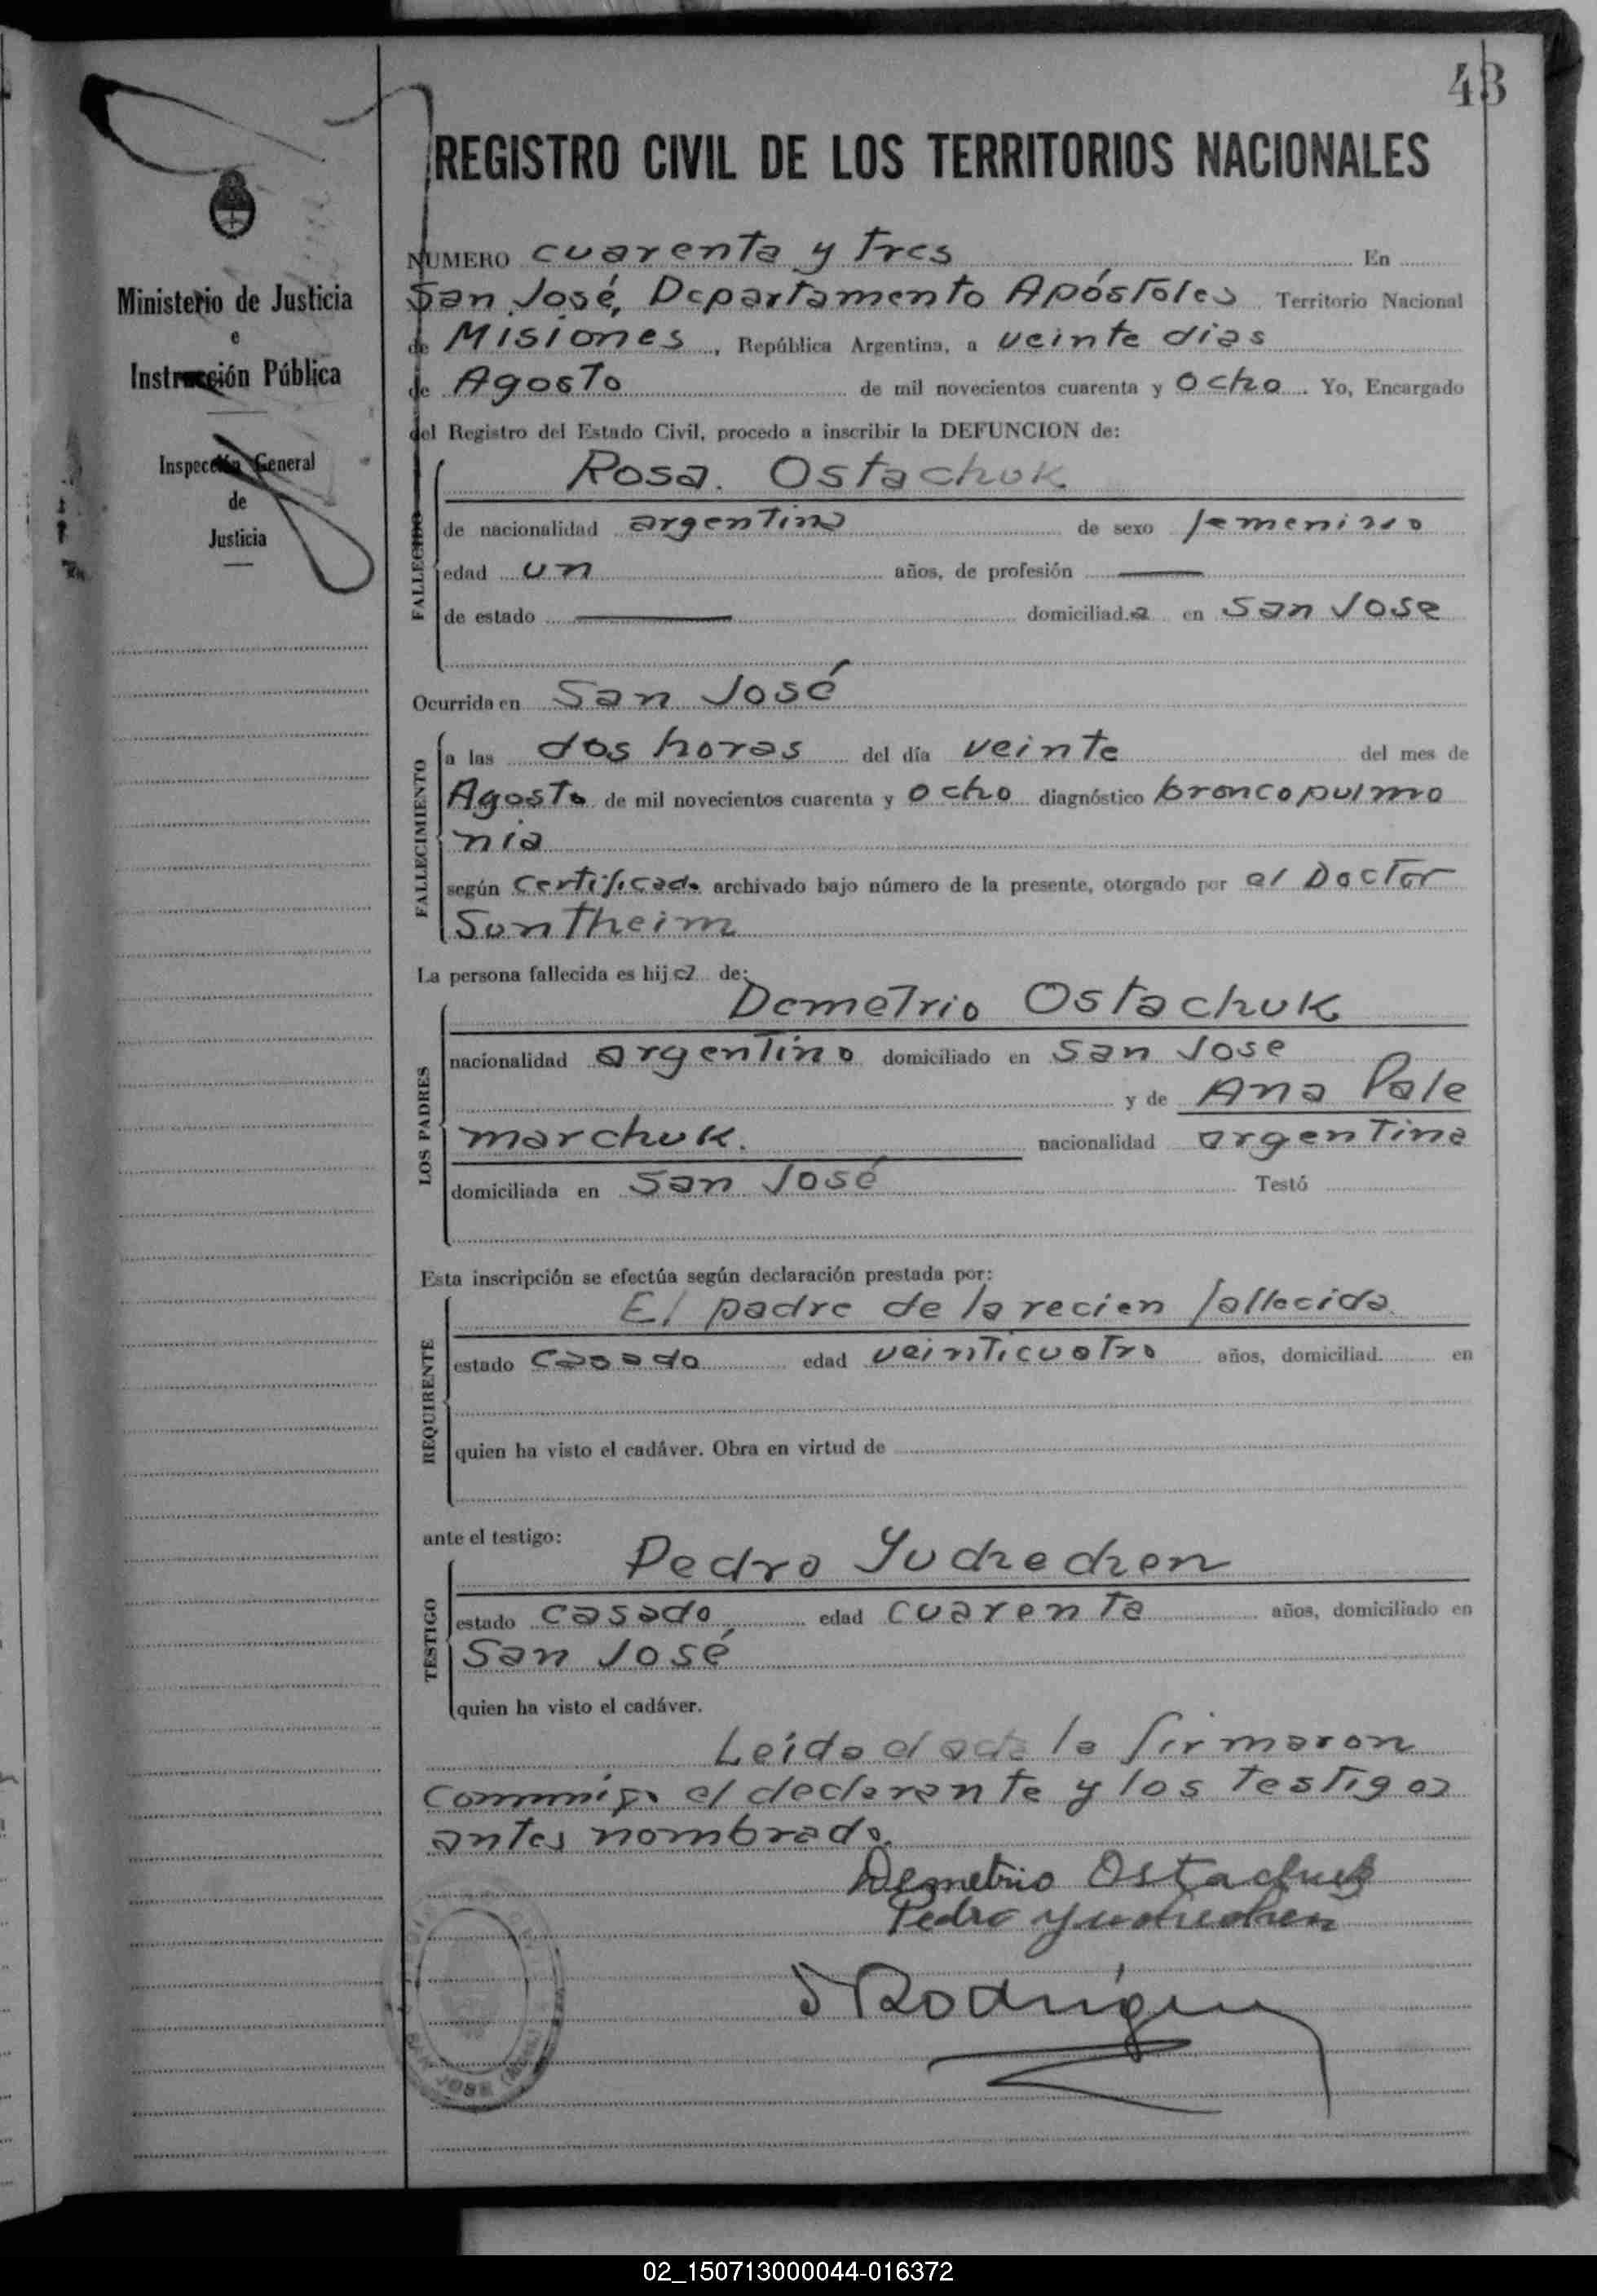 43
REGISTRO CIVIL DE LOS TERRITORIOS NACIONALES
Ministerio de Justicia
e
Instrucción Pública
Inspección General
de
Justicia
NUMERO cuarenta y tres En
San José, Departamento Apóstoles Territorio Nacional
de Misiones, República Argentina, a veinte dias
de Agosto de mil novecientos cuarenta y ocho. Yo, Encargado
del Registro del Estado Civil, procedo a inscribir la DEFUNCION de:
FALLECIDO
Rosa. Ostachuk
de nacionalidad argentina de sexo femenino
edad un años, de profesión —
de estado — domiciliada en San Jose
Ocurrida en San José
FALLECIMIENTO
a las dos horas del día veinte del mes de
Agosto de mil novecientos cuarenta y ocho diagnóstico broncopulmo
nia
según certificado archivado bajo número de la presente, otorgado por el Doctor
Suntheim
La persona fallecida es hija de:
LOS PADRES
Demetrio Ostachuk
nacionalidad argentino domiciliado en San Jose
y de Ana Pale
marchuk. nacionalidad argentina
domiciliada en San José Testó
Esta inscripción se efectúa según declaración prestada por:
REQUIRENTE
El padre de la recien fallecida
estado casado edad veinticuatro años, domiciliad en
quien ha visto el cadáver. Obra en virtud de
ante el testigo:
TESTIGO
Pedro Yuchechen
estado casado edad cuarenta años, domiciliado en
San José
quien ha visto el cadáver.
Leida el acta la firmaron
conmigo el declarante y los testigos
antes nombrado.
Demetrio Ostachuk
Pedro Yuchechen
Rodriguez
SAN JOSE
02_150713000044-016372